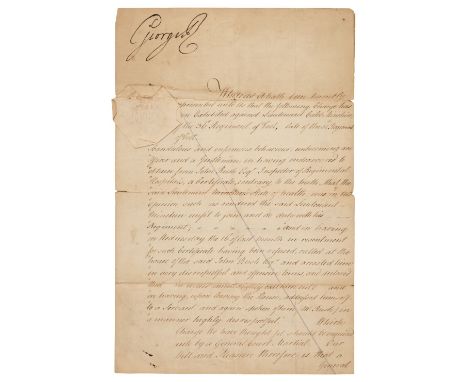 George R
Whereas it hath been humbly
represented unto us that the following Charge has
been Exhibited against Lieutenant
of the 36 Regiment of Foot, late of the
of Foot.
Scandalous and infamous behaviour, unbecoming an
Officer and a Gentleman in having endeavored to
obtain from John Rush Esqr. Inspector of Regimental
Hospitals, a Certificate, contrary to the truth, that the
said Lieutenant State of health was in his
Opinion such as rendered the said Lieutenant
unfit to join and do duty with his
Regiment; and in having
on Wednesday the 16 of last month in resentment
for such Certificate having been refused, called at the
house of the said John Rush Esqr. and
in very disrespectful and offensive terms, and
and
in having, upon leaving the House, addressed himself
to a Servant and again spoken of him Mr. Rush, in
a manner highly disrespectful. Which
Charge We have thought fit should be enquired
into by a General Court Martial. Our
Will and Pleasure therefore is that a
General